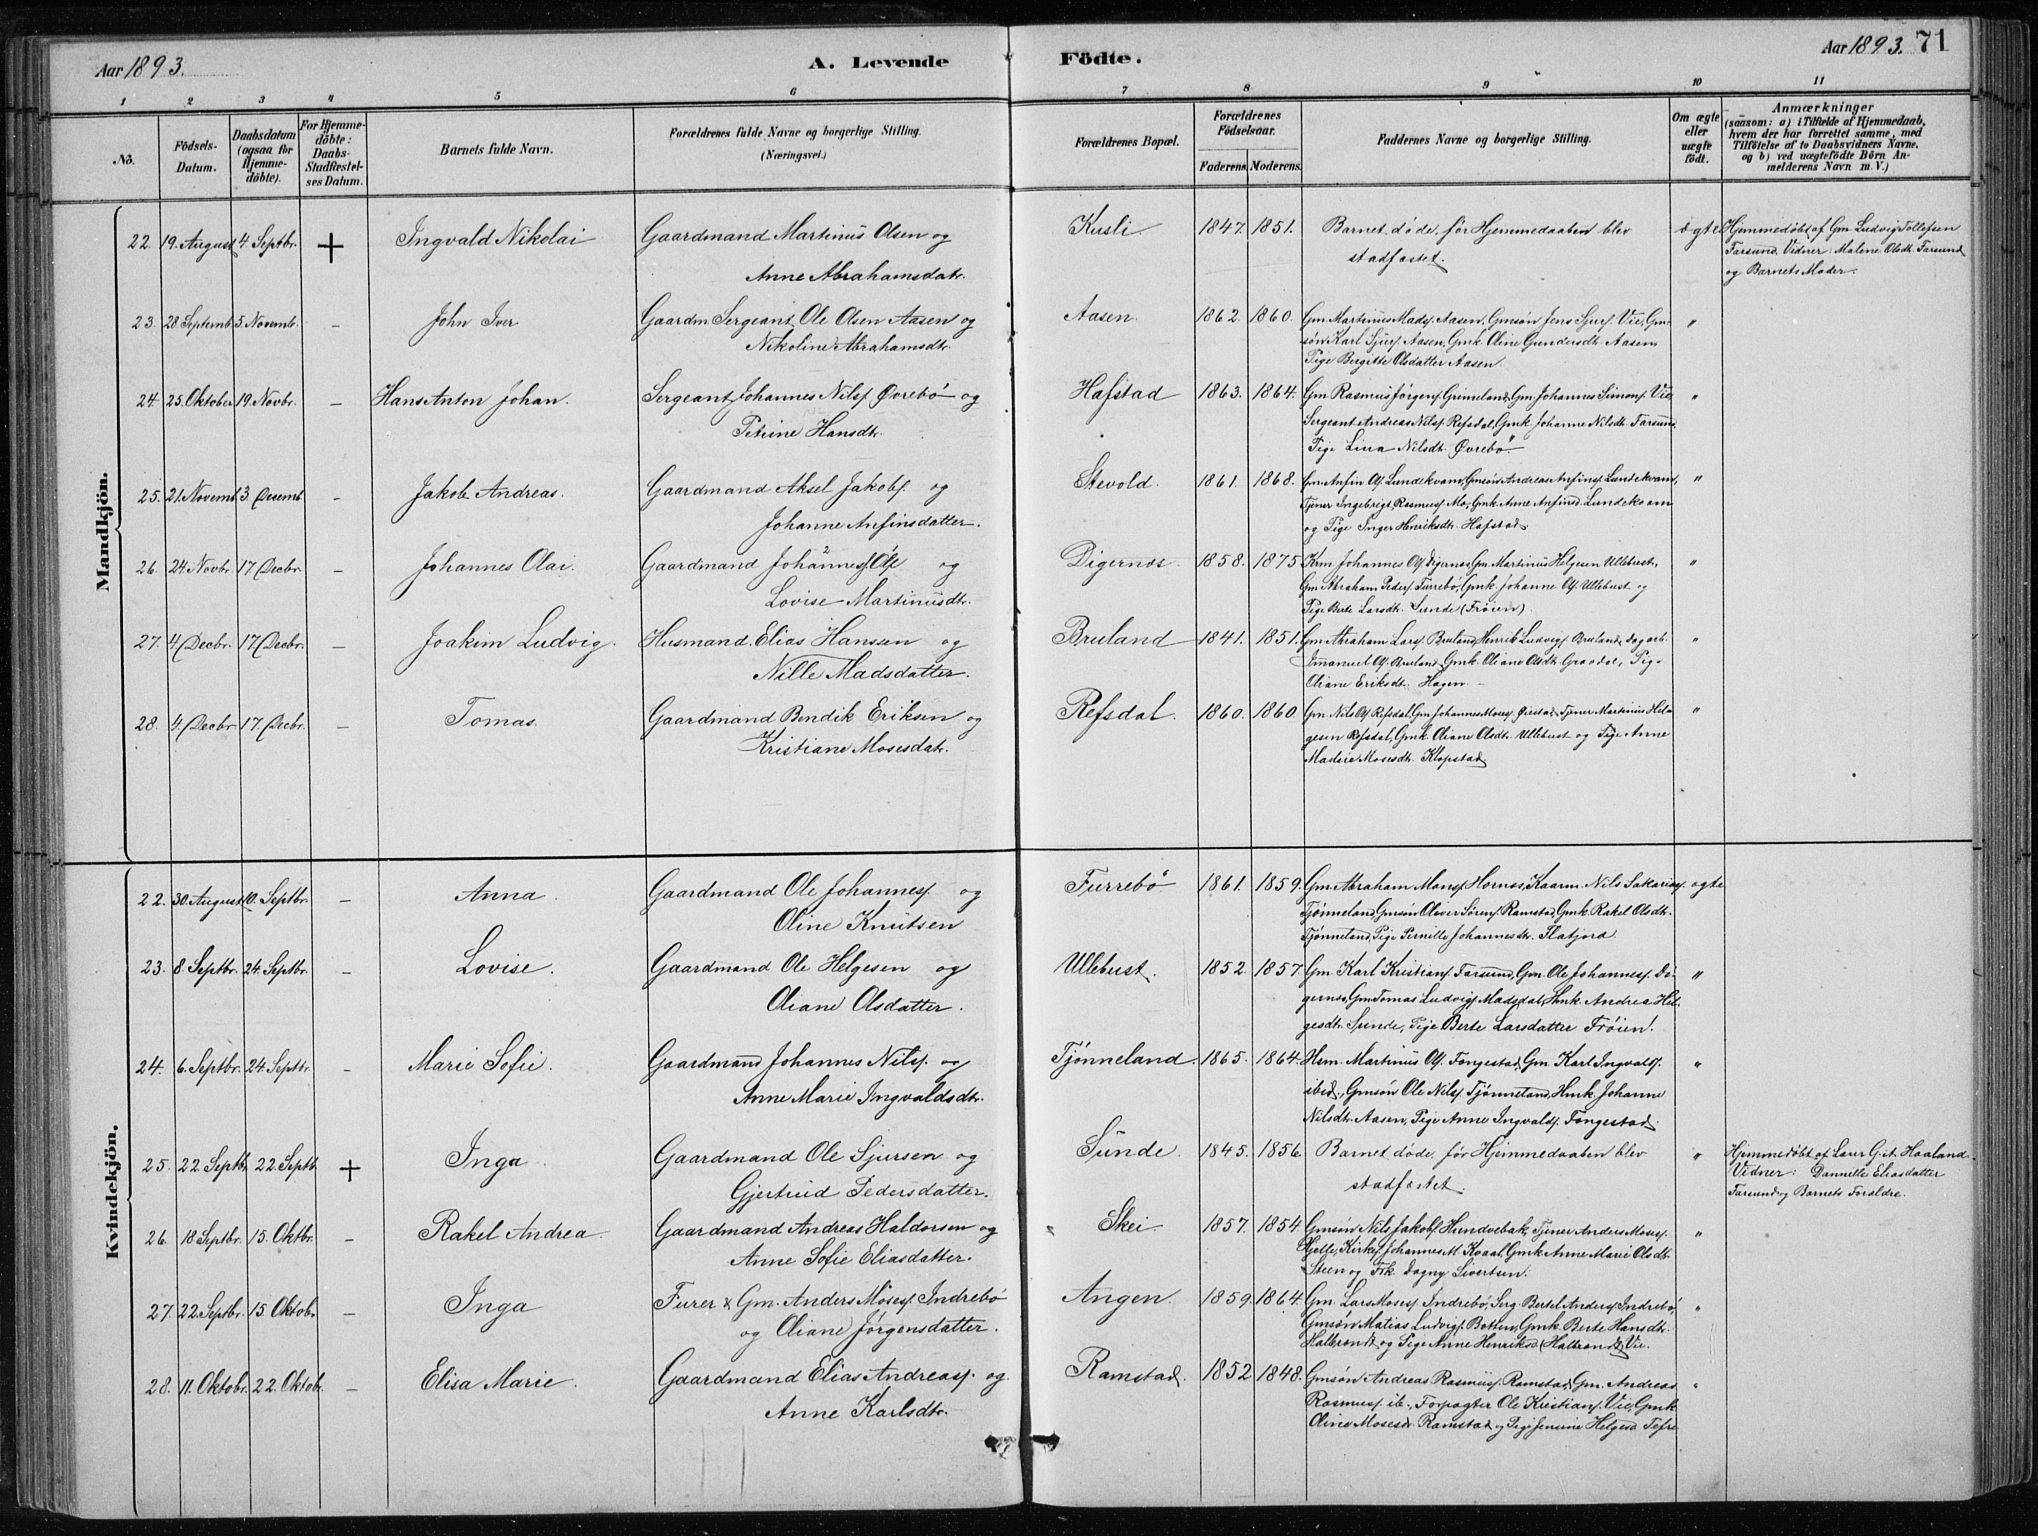 Aar 1893.
A. Levende Födte.
Aar 1893. 71
1 2 3 4 5 6 7 8 9 10 11
No.
Födsels-Datum.
Daabsdatum (ogsaa for Hjemme-döbte).
For Hjemme-döbte: Daabs-Stadfæstel-ses Datum.
Barnets fulde Navn.
Forældrenes fulde Navne og borgerlige Stilling.
(Næringsvei.)
Forældrenes Bopæl.
Forældrenes Födselsaar.
Faderens. Moderens.
Faddernes Navne og borgerlige Stilling.
Om ægte eller uægte födt.
Anmærkninger
(saasom: a) i Tilfælde af Hjemmedaab, hvem der har forrettet samme, med Tilföielse af to Daabsvidners Navne, og b) ved uægtefödte Börn An-melderens Navn m. V.)
Mandkjön.
22. 19. August 4. Septbr. + Ingvald Nikolai Gaardmand Martinus Olsen og Kusli 1847. 1851. Barnet døde før Hjemmedaaben blev ægte Hjemmedøbt af Gm. Ludvig Tollefsen
Anne Abrahamsdatr. stadfæstet. Farsund. Vidner: Malene Olsdt. Farsund
og Barnets Moder.
23. 28. Septemb. 5. Novemb. – John Iver Gaardm. Sergeant Ole Olsen Aasen og Aasen. 1862. 1860. Gm. Martinus Mads. Aasen, Gmsøn Jens Sjurs. Vie, Gm- "
Nikoline Abrahamsdtr. søn Karl Sjurs. Aasen, Gmk. Oline Gundersdt. Aasen,
Pige Birgitte Olsdatter Aasen.
24. 25. Oktober 19. Novbr. – Hans Anton Johan. Sergeant Johannes Nils. Øvrebø og Hafstad 1863. 1864. Gm. Rasmus Jørgens. Grimeland, Gm. Johannes Simons. Vie "
Petrine Hansdtr. Sergeant Andreas Nils. Refsdal, Gmk. Johanne Nilsdt. Farsund,
Pige Lina Nilsdt. Øvrebø.
25. 21. Novemb. 3. Decemb. – Jakob Andreas. Gaardmand Aksel Jakobs. og Stevold. 1861. 1868. Gm. Anfin Ols. Lundekvam, Gmsøn Andreas Anfins. Lundekvam, "
Johanne Anfinsdatter. Tjener Ingebrigt Rasmus. Mo, Gmk. Anne Anfinsd. Lundekvam
og Pige Inger Henriksdt. Hafstad.
26. 24. Novbr. 17. Decbr. – Johannes Olai. Gaardmand Johannes Ols. og Digernes. 1858. 1875. Krm. Johannes Ols. Digernes, Gm. Martinus Helgesen Ullebust, "
Lovise Martinusdtr. Gm. Abraham Peders. Furrebø, Gmk. Johanne Ols. Ullebust og
Pige Berte Larsdt. Sunde (Frøien).
27. 4. Decbr. 17. Decbr. – Joakim Ludvig. Husmand. Elias Hansen og Bruland 1841. 1851. Gm. Abraham Lars. Bruland, Henrik Ludvigs. Bruland, dagarb. "
Nille Madsdatter. Immanuel Ols. Bruland, Gmk. Oliane Olsdt. Graadal, Pige
Oliane Eriksdt. Hagen.
28. 4. Decbr. 17. Decbr. – Tomas. Gaardmand Bendik Eriksen og Refsdal. 1860. 1860. Gm. Nils Ols. Refsdal, Gm. Johannes Moses. Øiestad, Tjener Martinus Hel- "
Kristiane Mosesdatr. gesen Refsdal, Gmk. Oliane Olsdt. Ullebust og Pige Anne
Madsie Mosesdt. Klopstad.
Kvindekjön.
22. 30. August 10. Septbr. – Anna. Gaardmand Ole Johannes. og Furrebø 1861. 1859. Gm. Abraham Mons. Hornes, Kaarm. Nils Sakarias. ægte
Oline Knutsen Tjønneland, Gmsøn Oliver Sørens. Ramstad, Gmk. Rakel Olsdt.
Tjønneland, Pige Pernille Johannesdtr. Flatjord
23. 8. Septbr. 24. Septbr. – Lovise. Gaardmand Ole Helgesen og Ullebust. 1852. 1857. Gm. Karl Kristians. Farsund, Gm. Ole Johannes. Di- "
Oliane Olsdatter. gernes, Gm. Tomas Ludvigs. Madsdal, Hmk. Andrea Hel-
gesdt. Sunde, Pige Berte Larsdatter Frøien.
24. 6. Septbr. 24. Septbr. – Marie Sofie. Gaardmand Johannes Nils. og Tjønneland. 1865. 1864. Hsm. Martinus Ols. Fongestad, Gm. Karl Ingvalds. "
Anne Marie Ingvaldsdt. ibid., Gmsøn Ole Nils. Tjønneland, Hmk. Johanne
Nilsdt. Aasen, Pige Anne Ingvalds. Fongestad.
25. 22. Septbr. 22. Septb. + Inga. Gaardmand Ole Sjursen og Sunde. 1845. 1856. Barnet døde før Hjemmedaaben blev " Hjemmedøbt af Lærer G. A. Haaland.
Gjertrud Pedersdatter. stadfæstet. Vidner: Dannelle Eliasdatter
Farsund og Barnets Forældre.
26. 18. Septbr. 15. Oktbr. – Rakel Andrea. Gaardmand Andreas Haldorsen og Skei. 1857. 1854. Gmsøn Nils Jakobs. Hundvebak, Tjener Anders Moses. "
Anne Sofie Eliasdatter. Hjelle, Kirkes. Johannes M. Kvaal, Gmk. Anne Marie Olsdt.
Steen og Frk. Dagny Sivertsen.
27. 22. Septbr. 15. Oktobr. – Inga Furer & Gm. Anders Moses. Indrebø Angen. 1859. 1864. Gm. Lars Moses. Indrebø, Serg. Bertel Anders. Indrebø, "
og Oliane Jørgensdatter. Gmsøn Matias Ludvigs. Botten, Gmk. Berte Hansdt.
Halbrendt og Pige Anne Henriksd. (Halbrendt) Vie.
28. 11. Oktobr. 22. Oktobr. – Elisa Marie. Gaardmand Elias Andreas. og Ramstad. 1852 1848. Gmsøn Andreas Rasmus. Ramstad, Gm. Andreas "
Anne Karlsdtr. Rasmus. ib., Forpagter Ole Kristians. Vie, Gmk.
Oline Mosesdr. Ramstad og Pige Jensine Helgesd. Tefre